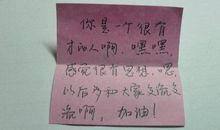 你是一个很有
才的人啊，嘿嘿，
感觉很有思想，嗯
以后多和大家交流交
流啊，加油！